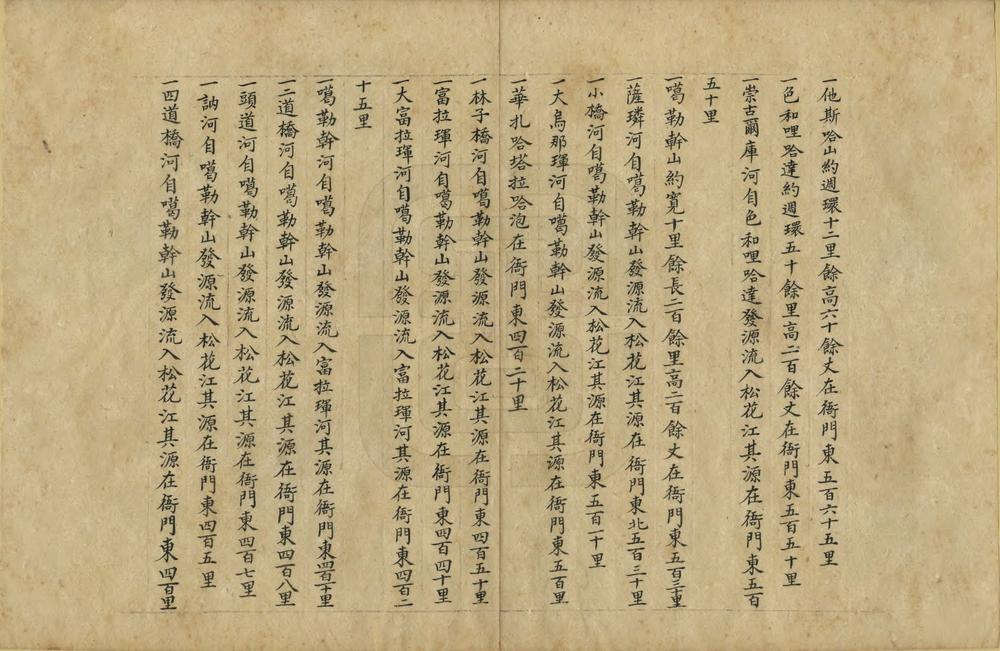 一他斯哈山約週環十二里餘高六十餘丈在衙門東五百六十五里
一色和哩哈達約週環五十餘里高二百餘丈在衙門東五百五十里
一崇古爾庫河自色和哩哈達發源流入松花江其源在衙門東五百
五十里
一噶勒幹山約寬十里餘長二百餘里高二百餘丈在衙門東五百三十里
一薩璘河自噶勒幹山發源流入松花江其源在衙門東北五百三十里
一小橋河自噶勒幹山發源流入松花江其源在衙門東五百一十里
一大烏那琿河自噶勒幹山發源流入松花江其源在衙門東五百里
一華扎哈塔拉哈泡在衙門東四百二十里
一林子橋河自噶勒幹山發源流入松花江其源在衙門東四百五十里
一富拉琿河自噶勒幹山發源流入松花江其源在衙門東四百四十里
一大富拉琿河自噶勒幹山發源流入富拉琿河其源在衙門東四百二
十五里
一噶勒幹河自噶勒幹山發源流入富拉琿河其源在衙門東四百二十里
一二道橋河自噶勒幹山發源流入松花江其源在衙門東四百八里
一頭道河自噶勒幹山發源流入松花江其源在衙門東四百七里
一訥河自噶勒幹山發源流入松花江其源在衙門東四百五里
一四道橋河自噶勒幹山發源流入松花江其源在衙門東四百里